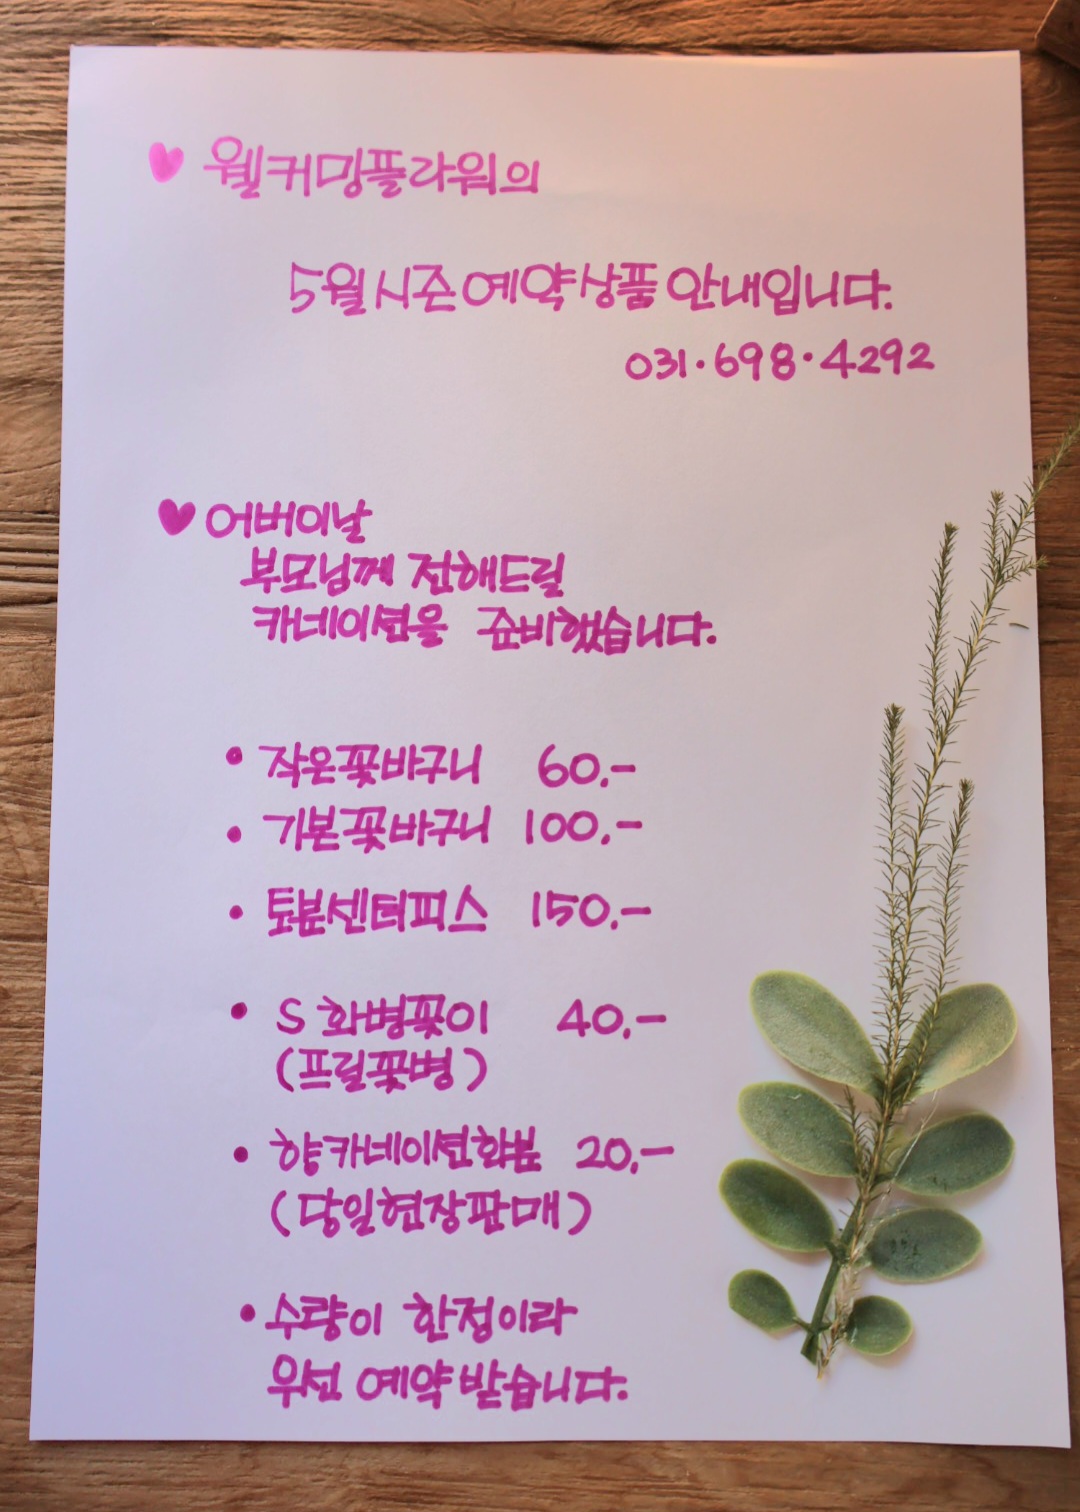 ♥ 웰커밍플라워의
5월 시즌 예약상품 안내입니다.
031·698·4292
♥ 어버이날
부모님께 전해드릴
카네이션을 준비했습니다.
• 작은꽃바구니 60.-
• 기본꽃바구니 100.-
• 토분센터피스 150.-
• S 화병꽂이 40.-
(프릴꽃병)
• 향카네이션화분 20.-
(당일현장판매)
• 수량이 한정이라
우선 예약 받습니다.